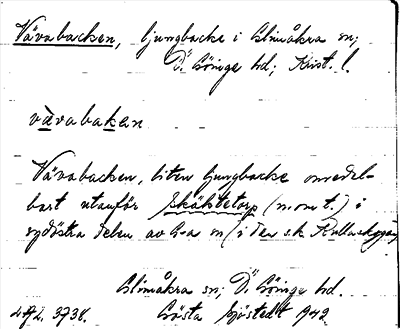 Vävabacken, ljungbacke i Glimåkra sn;
Ö. Göinge hd; Krist. l.
vävabaken
Vävabacken, liten ljungbacke omedel-
bart utanför Skäktetorp (n. om t.) i
sydöstra delen av G-a sn (i den s.k.
Glimåkra sn, Ö. Göinge hd.
Gösta Sjöstedt 1942.